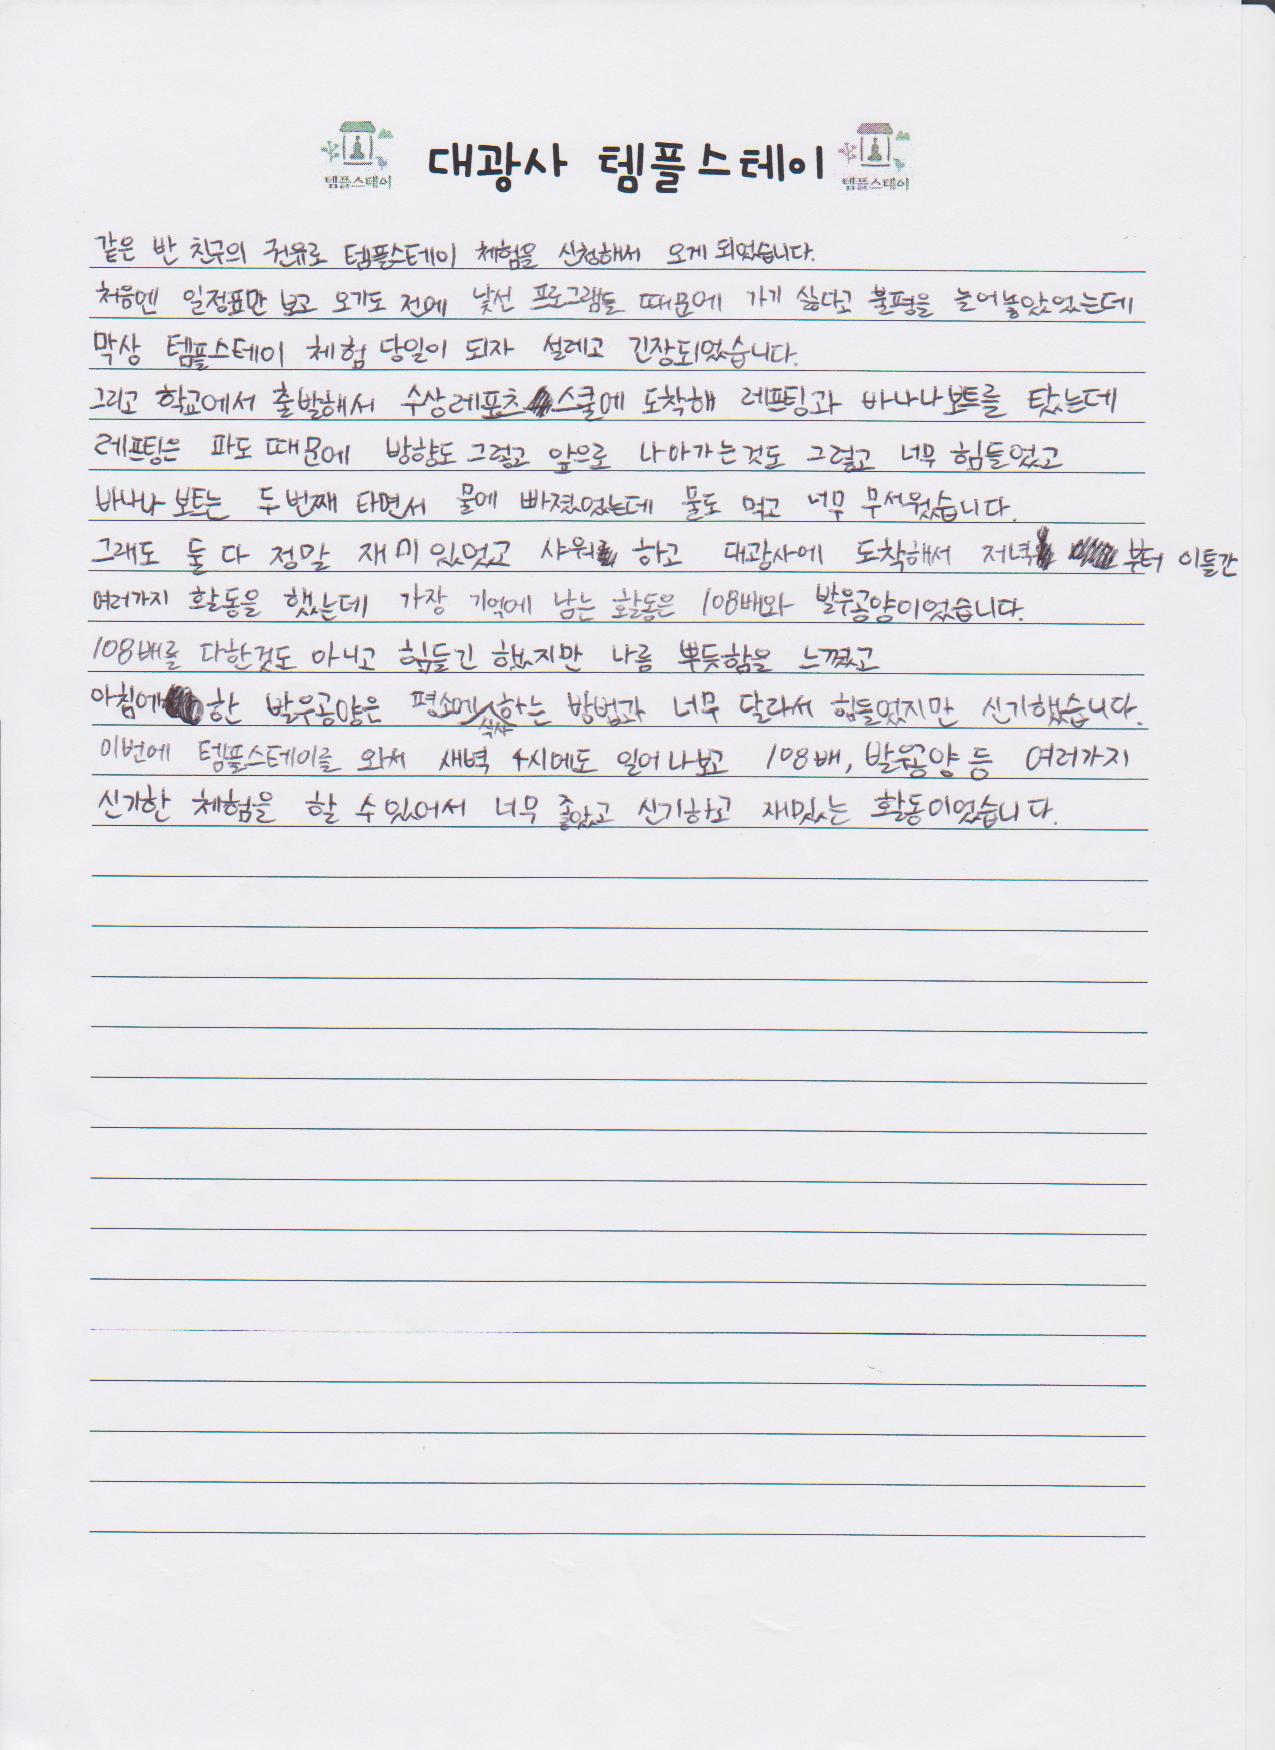 템플스테이 대광사 템플스테이 템플스테이
같은 반 친구의 권유로 템플스테이 체험을 신청해서 오게 되었습니다.
처음엔 일정표만 보고 오기도 전에 낯선 프로그램들 때문에 가기 싫다고 불평을 늘어놓았었는데
막상 템플스테이 체험 당일이 되자 설레고 긴장되었습니다.
그리고 학교에서 출발해서 수상레포츠 스쿨에 도착해 레프팅과 바나나보트를 탔는데
레프팅은 파도 때문에 방향도 그렇고 앞으로 나아가는것도 그렇고 너무 힘들었고
바나나 보트는 두번째 타면서 물에 빠졌었는데 물도 먹고 너무 무서웠습니다.
그래도 둘 다 정말 재미있었고 샤워 하고 대광사에 도착해서 저녁 부터 이틀간
여러가지 활동을 했는데 가장 기억에 남는 활동은 108배와 발우공양이었습니다.
108배를 다한것도 아니고 힘들긴 했지만 나름 뿌듯함을 느꼈고
아침에 한 발우공양은 평소에 식사하는 방법과 너무 달라서 힘들었지만 신기했습니다.
이번에 템플스테이를 와서 새벽 4시에도 일어나보고 108배, 발우공양 등 여러가지
신기한 체험을 할 수 있어서 너무 좋았고 신기하고 재밌는 활동이었습니다.